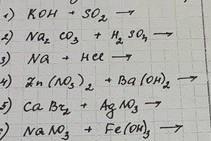 1) KOH + SO₂ →
2) Na₂ CO₃ + H₂SO₄ →
3) Na + HCl →
4) Zn(NO₃)₂ + Ba(OH)₂ →
5) CaBr₂ + AgNO₃ →
NaNO₃ + Fe(OH)₃ →